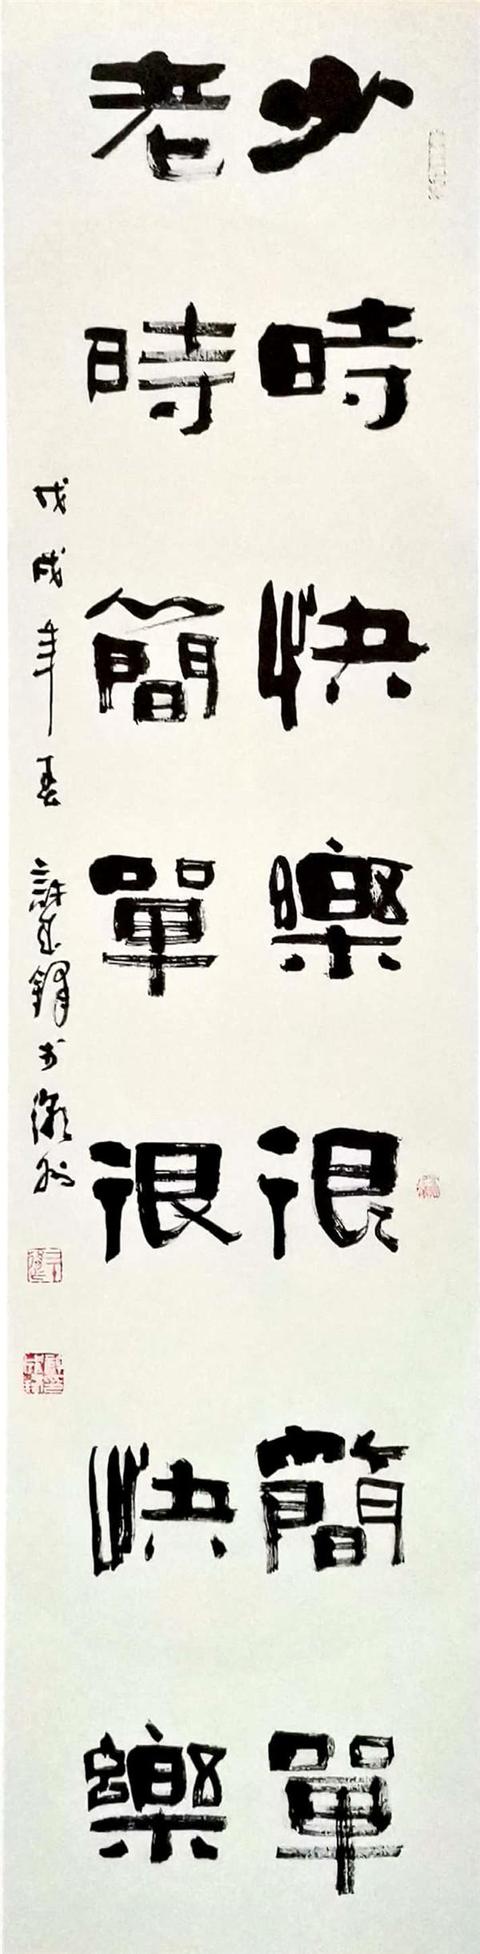 少時快樂很簡單
老時簡單很快樂
戊戌年春 許 鐸 於